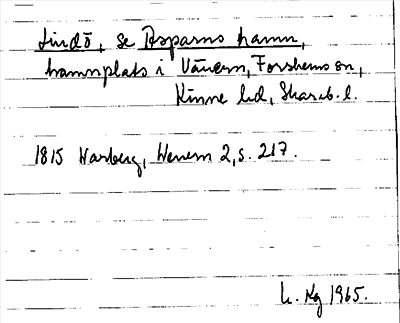 Lindö, se Asparns hamn,
hamnplats i Vänern, Forshems sn,
Kinne hd, Skarab. l.
1815 Warberg, Wenern 2, s. 217.
L. Kg 1965.